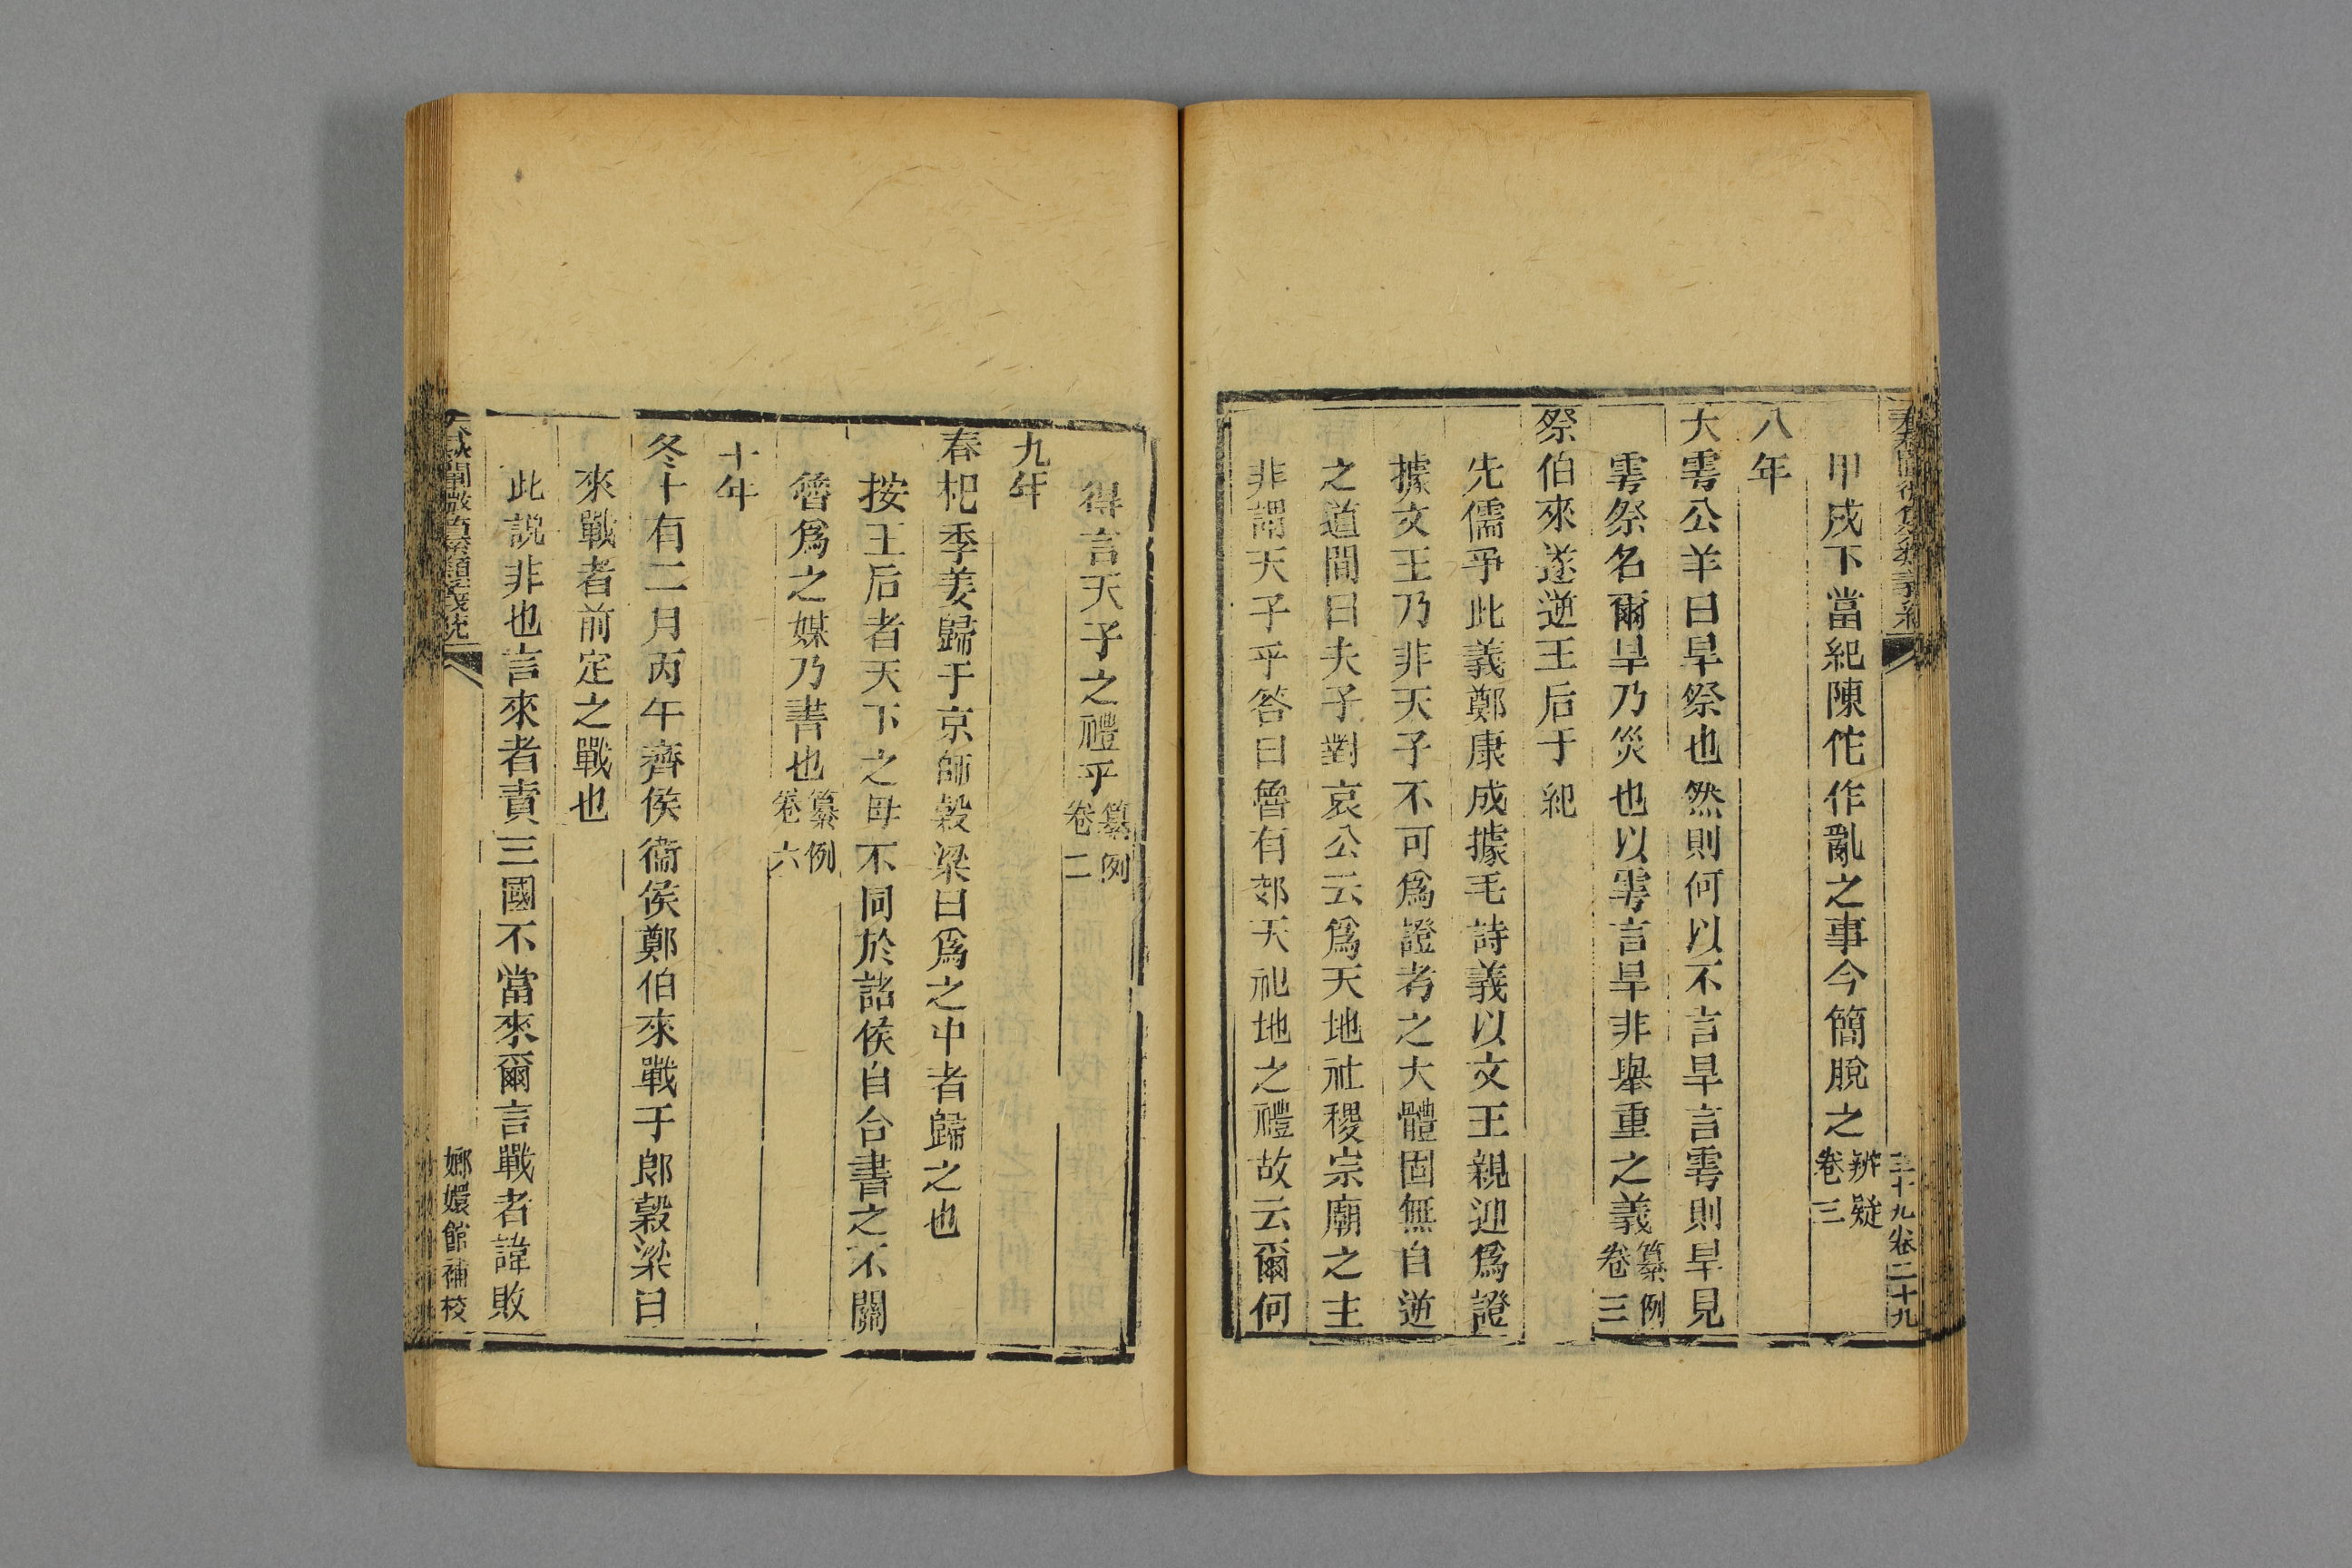 甲戌下當紀陳佗作亂之事今簡脫之辨疑卷三
八年
大雩公羊曰旱祭也然則何以不言旱言雩則旱見
雩祭名爾旱乃災也以雩言旱非舉重之義纂例卷三
祭伯來遂逆王后于紀
先儒爭此義鄭康成據毛詩義以文王親迎爲證
據文王乃非天子不可爲證考之大體固無自逆
之道間曰夫子對哀公云爲天地社稷宗廟之主
非謂天子乎答曰魯有郊天祀地之禮故云爾何
得言天子之禮乎纂例卷二
九年
春杞季姜歸于京師穀梁曰爲之中者歸之也
按王后者天下之母不同於諸侯自合書之不關
魯爲之媒乃書也纂例卷六
十年
冬十有二月丙午齊侯衞侯鄭伯來戰于郎穀梁曰
來戰者前定之戰也
此說非也言來者責三國不當來爾言戰者諱敗
嫏嬛館補校